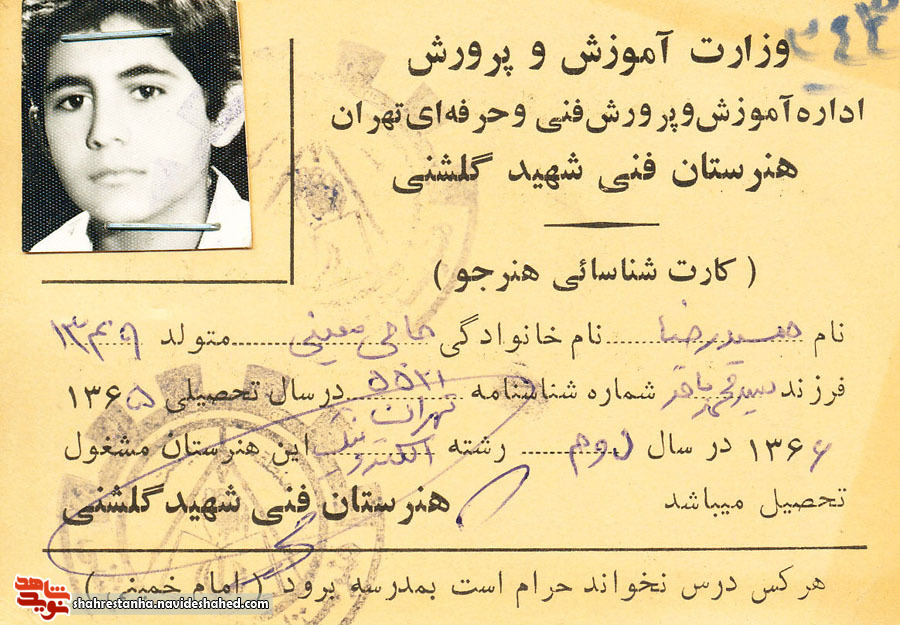 ۳۴۳
وزارت آموزش و پرورش
اداره آموزش و پرورش فنی و حرفه ای تهران
هنرستان فنی شهید گلشنی
( کارت شناسائی هنرجو )
نام حمیدرضا نام خانوادگی حاجی معینی متولد ۱۳۴۹
فرزند سیدمحمدباقر شماره شناسنامه ۵۵۲۱ تهران درسال تحصیلی ۱۳۶۵
۱۳۶۶ در سال دوم رشته الکترونیک این هنرستان مشغول
تحصیل میباشد هنرستان فنی شهید گلشنی
هر کس درس نخواند حرام است بمدرسه برود ( امام خمینی )
نوید شاهد shahrestanha.navideshahed.com